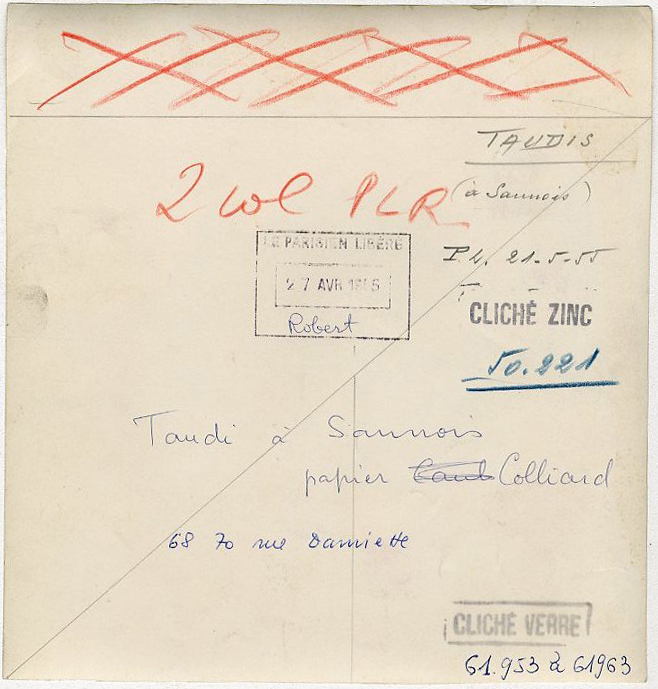 TAUDIS
(à Sannois)
2 col PLR
LE PARISIEN LIBÉRÉ
P.L. 21-5-55
27 AVR 1955
CLICHÉ ZINC
Robert
50.221
Taudi à Sannois
papier Colliard
68 70 rue Damiette
CLICHÉ VERRE
61.953 à 61963